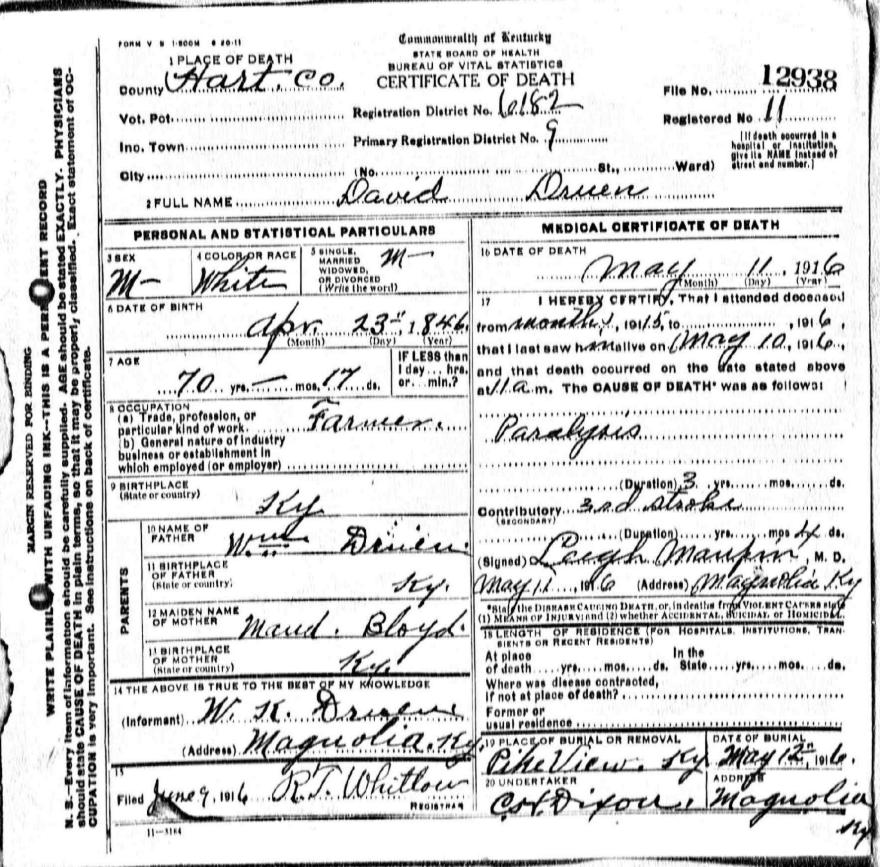 FORM V S 1-500M 6 20-11
Commonwealth of Kentucky
STATE BOARD OF HEALTH
BUREAU OF VITAL STATISTICS
CERTIFICATE OF DEATH
1 PLACE OF DEATH
County Hart. Co.
Vot. Pct.
Inc. Town
City (No. St., Ward)
Registration District No. 6182
Primary Registration District No. 9
File No. 12938
Registered No 11
[If death occurred in a
hospital or institution,
give its NAME instead of
street and number.]
2 FULL NAME David Druen
PERSONAL AND STATISTICAL PARTICULARS
3 SEX
M-
4 COLOR OR RACE
White
5 SINGLE,
MARRIED
WIDOWED,
OR DIVORCED
(Write the word)
M-
6 DATE OF BIRTH
Apr. 23", 1846
(Month) (Day) (Year)
7 AGE
70 yrs. — mos. 17 ds.
IF LESS than
1 day... hrs.
or... min.?
8 OCCUPATION
(a) Trade, profession, or
particular kind of work. Farmer.
(b) General nature of industry
business or establishment in
which employed (or employer)
9 BIRTHPLACE
(State or country)
Ky
PARENTS
10 NAME OF
FATHER
Wm Druen.
11 BIRTHPLACE
OF FATHER
(State or country)
Ky.
12 MAIDEN NAME
OF MOTHER
Maud. Bloyd.
13 BIRTHPLACE
OF MOTHER
(State or country)
Ky.
14 THE ABOVE IS TRUE TO THE BEST OF MY KNOWLEDGE
(Informant) W. K. Druen
(Address) Magnolia. Ky.
15
Filed June 9, 1916 R.T. Whitlow
REGISTRAR
11—3184
MEDICAL CERTIFICATE OF DEATH
16 DATE OF DEATH
May 11, 1916
(Month) (Day) (Year)
17 I HEREBY CERTIFY, That I attended deceased
from 1915, to , 1916,
that I last saw him alive on May 10, 1916,
and that death occurred on the date stated above
at 11 a m. The CAUSE OF DEATH* was as follows:
Paralysis
(Duration) 3 yrs. mos. ds.
Contributory 3rd stroke
(SECONDARY)
(Duration) yrs. mos 4 ds.
(Signed) Leigh Maupin, M. D.
May 11, 1916 (Address) Magnolia Ky
*State the DISEASE CAUSING DEATH, or, in deaths from VIOLENT CAUSES state
(1) MEANS OF INJURY; and (2) whether ACCIDENTAL, SUICIDAL or HOMICIDAL.
18 LENGTH OF RESIDENCE (FOR HOSPITALS, INSTITUTIONS, TRAN-
SIENTS OR RECENT RESIDENTS)
At place In the
of death yrs. mos. ds. State yrs. mos. ds.
Where was disease contracted,
If not at place of death?
Former or
usual residence
19 PLACE OF BURIAL OR REMOVAL
Pike View. Ky.
DATE OF BURIAL
May 12", 1916.
20 UNDERTAKER
Dixon.
ADDRESS
Magnolia
Ky
MARGIN RESERVED FOR BINDING
WRITE PLAINLY WITH UNFADING INK—THIS IS A PERMANENT RECORD
N. B.—Every item of information should be carefully supplied. AGE should be stated EXACTLY. PHYSICIANS
should state CAUSE OF DEATH in plain terms, so that it may be properly classified. Exact statement of OC-
CUPATION is very important. See instructions on back of certificate.